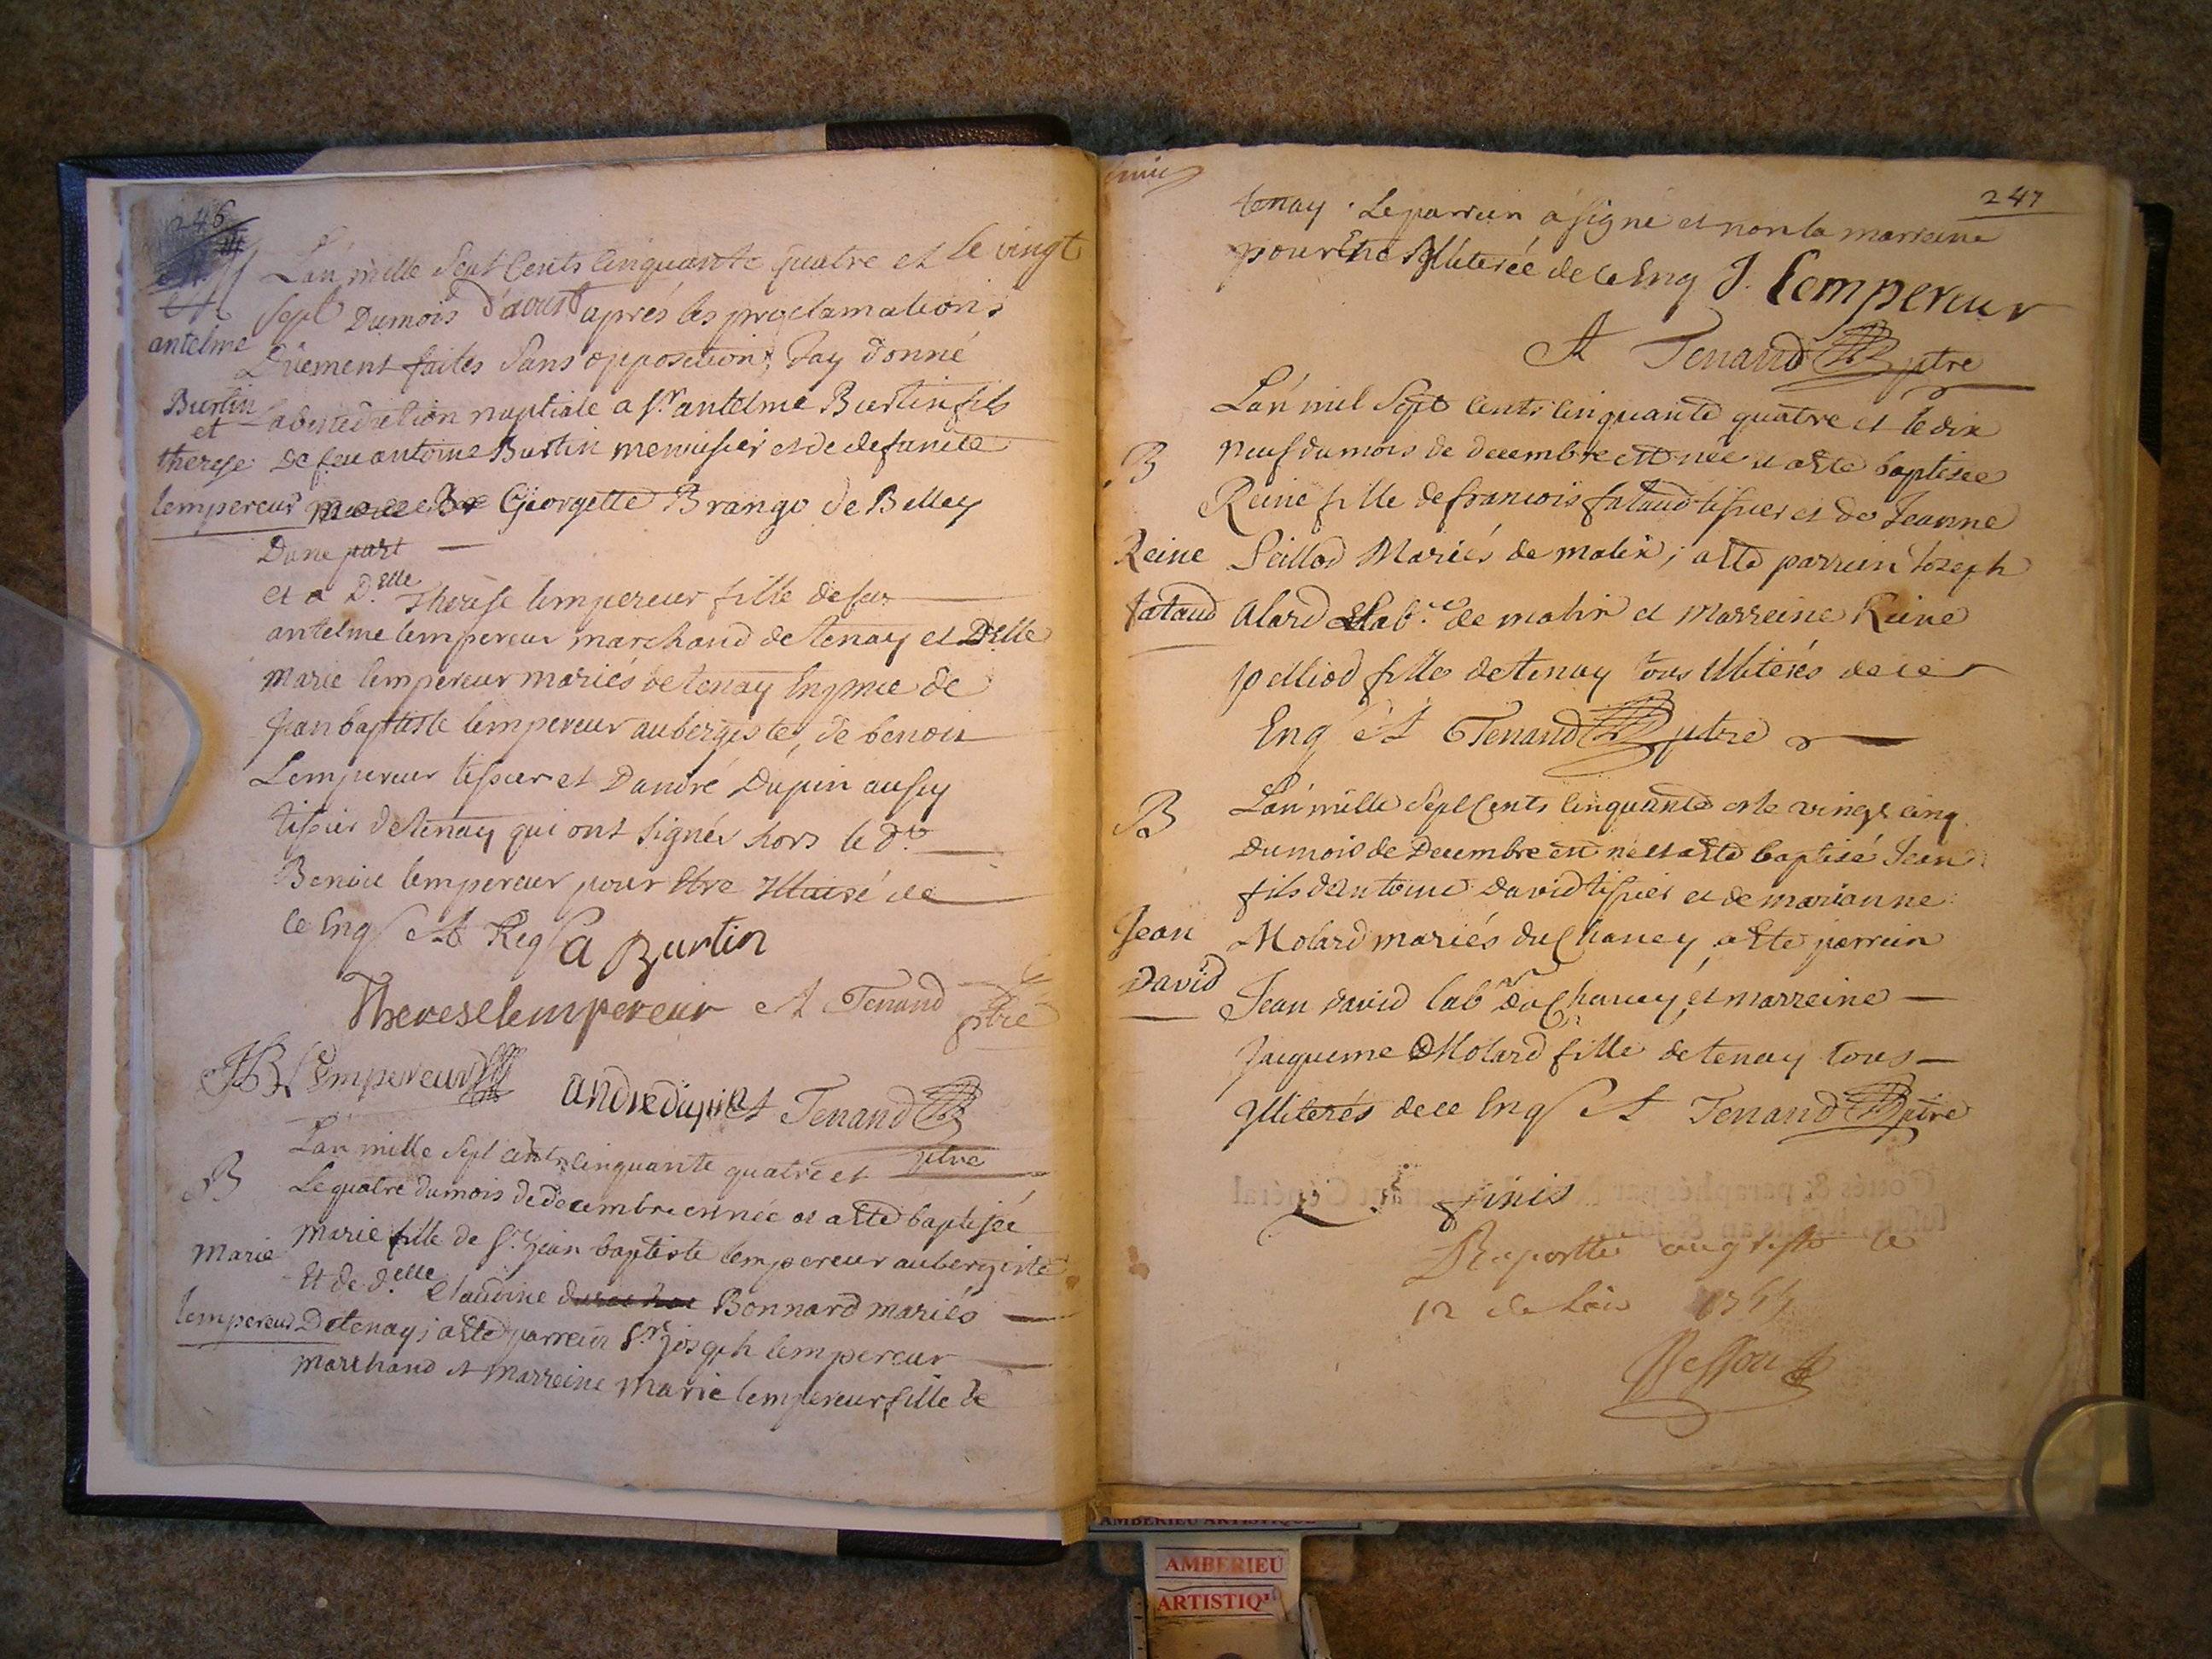 246
L'an mille Sept Cents Cinquante quatre et le vingt
sept Dumois d'aoust aprés les proclamations
antelme
Düement faites Sans opposition, Jay donné
Burtin
la benediction nuptiale a Sr. antelme Burtin fils
et
therese
de feu antoine Burtin menuisier et de defuncte
lempereur
Georgette Brango de Belley
Dune part
et a D.elle Therese lempereur fille de feu
antelme lempereur marchand de tenay et D.elle
Marie lempereur mariés de tenay En pnce de
Jean baptiste lempereur aubergiste, de benoit
Lempereur tissier et Dandré Dupin aussy
tissier de tenay qui ont signés hors le dt.
Benoit lempereur pour Etre Illiteré de
ce Enq et Reqs a Burtin
Therese lempereur et Tenand ptre
JB Lempereur andre dupin et Tenand
ptre
L'an mille Sept cents cinquante quatre et
B
Le quatre dumois de decembre est née et a Eté baptisée
Marie fille de Sr. Jean baptiste lempereur aubergiste
Marie
Et de d.elle Claudine Bonnard mariés
lempereur
De tenay; a Eté parrein Sr. Joseph lempereur
marchand et marreine Marie lempereur fille de
247
tenay. Le parrein a signé et non la marreine
pour Etre Illiterée de ce Enq J. Lempereur
et Tenand ptre
L'an mil Sept cents cinquante quatre et le dix
B
neuf dumois de decembre est née et a Eté baptisée
Reine fille de francois fataud tissier et de Jeanne
Reine
Peillod Mariés de malix; a Eté parrein Joseph
fataud
alard lab.r de malix et Marreine Reine
pelliod fille de tenay tous Illiterés de ce
Enq et Tenand ptre
B
L'an mille Sept Cents Cinquante et le vingt cinq
dumois de Decembre est né et a Eté baptisé Jean
fils d'antoine David tissier et de marianne
Jean
Molard mariés du Chaney, a Eté parrein
David
Jean David lab.r du Chaney, et marreine
Jacqueme Molard fille de tenay tous
Illiterés de ce Enq et Tenand ptre
finis
Raporttée au greffe le
AMBERIEU ARTISTIQUE
AMBERIEU
ARTISTIQ